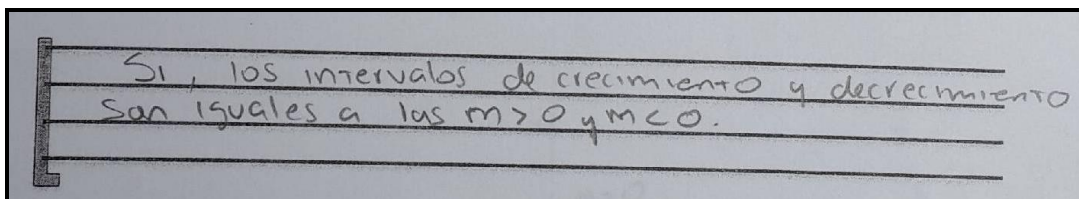 Si, los intervalos de crecimiento y decrecimiento
san iguales a las m>0 y m<0.